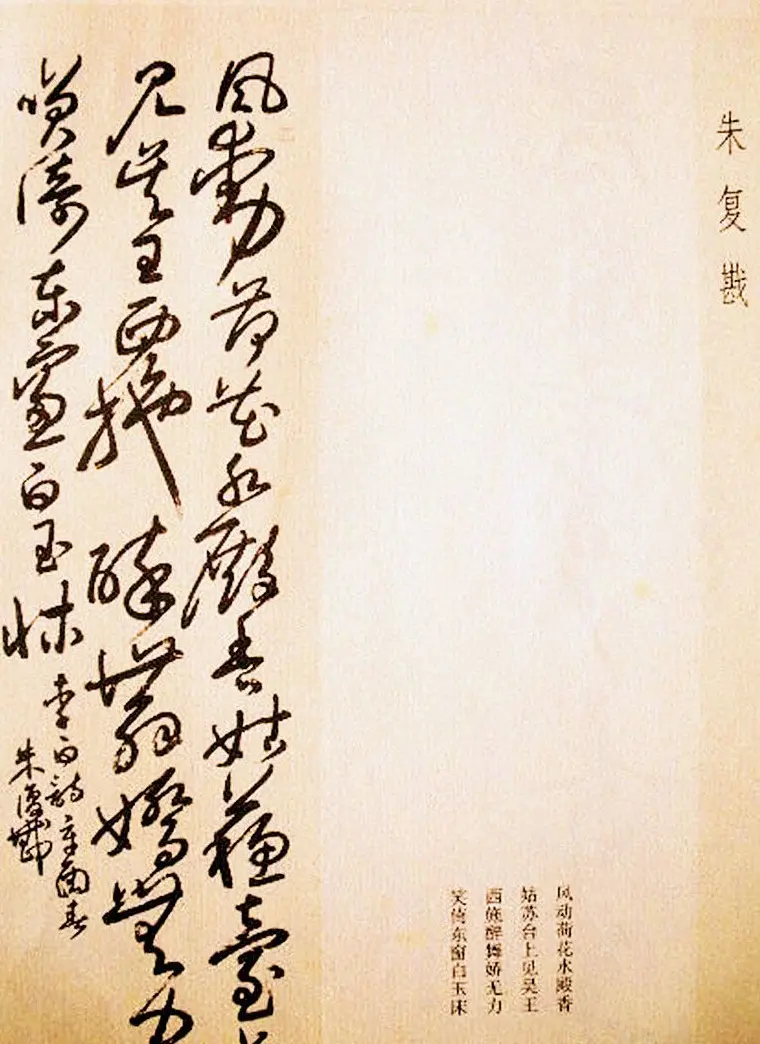 朱复戡
风动荷花水殿香
姑苏台上见吴王
西施醉舞娇无力
笑倚东窗白玉床
風動荷花水殿香姑蘇臺上
見吴王西施醉舞嬌無力
咲倚東窗白玉牀
李白詩辛酉春
朱復戡